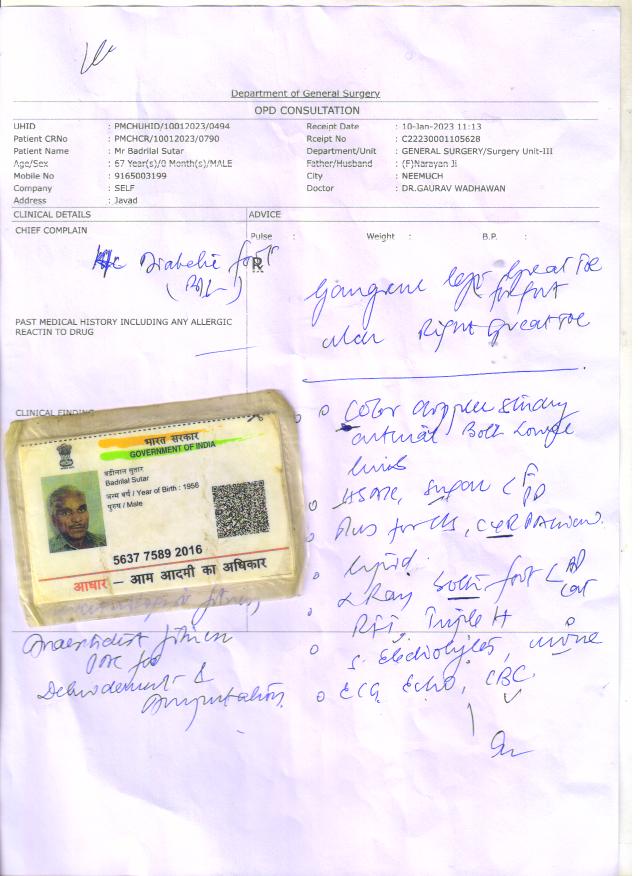 Department of General Surgery
OPD CONSULTATION
UHID : PMCHUHID/10012023/0494 Receipt Date : 10-Jan-2023 11:13
Patient CRNo : PMCHCR/10012023/0790 Rceipt No : C22230001105628
Patient Name : Mr Badrilal Sutar Department/Unit : GENERAL SURGERY/Surgery Unit-III
Age/Sex : 67 Year(s)/0 Month(s)/MALE Father/Husband : (F)Narayan Ji
Mobile No : 9165003199 City : NEEMUCH
Company : SELF Doctor : DR.GAURAV WADHAWAN
Address : Javad
CLINICAL DETAILS ADVICE
CHIEF COMPLAIN
Pulse : Weight : B.P. :
Diabetic foot
(B/L)
Gangrene left Great Toe
forefoot
Right Great Toe
PAST MEDICAL HISTORY INCLUDING ANY ALLERGIC
REACTIN TO DRUG
CLINICAL FINDING
Color doppler study
arterial Both Lower
limb
HbA1c, Sugar F
PP
Pus for C/S,
lipid
X Ray both foot AP
RFT Triple H
S. Electrolytes, urine
ECG Echo, CBC
भारत सरकार
GOVERNMENT OF INDIA
बद्रीलाल सुतार
Badrilal Sutar
जन्म वर्ष / Year of Birth : 1956
पुरुष / Male
5637 7589 2016
आधार – आम आदमी का अधिकार
Anaesthetist fitness
PAC for
Debridement &
Amputation